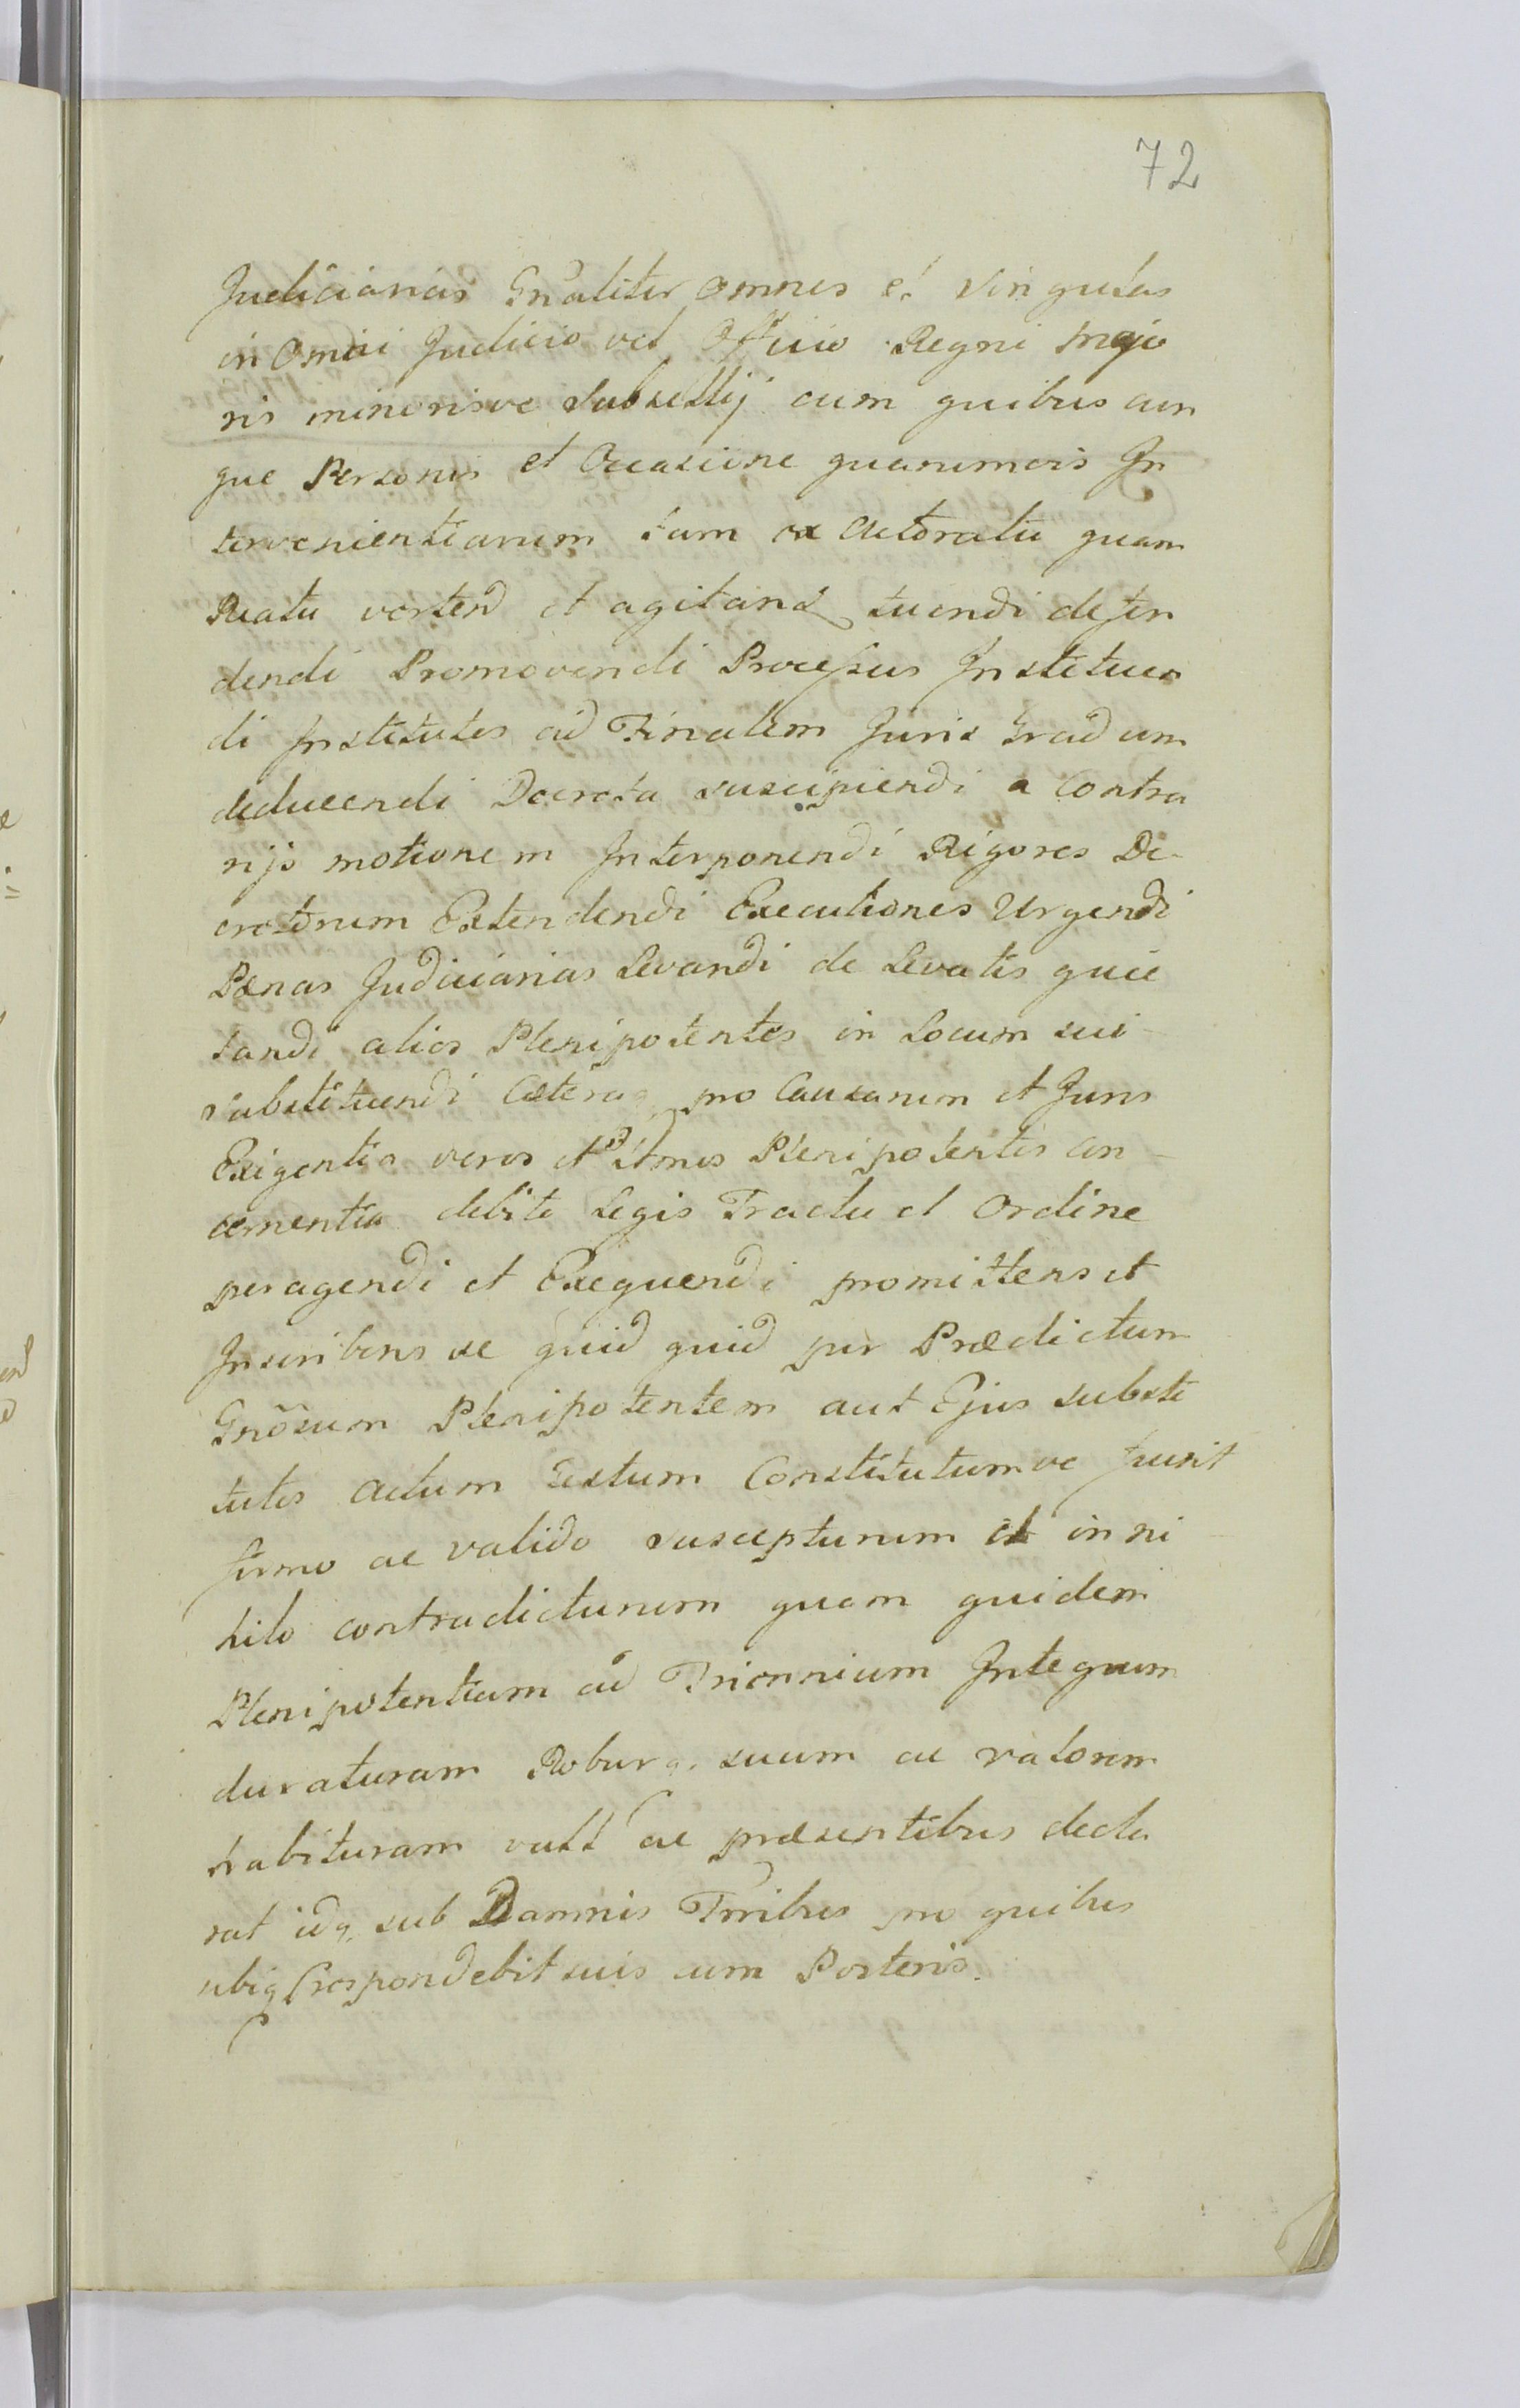 72
Judiciarias Gn̄aliter omnes et singulas
in Omni Judicio vel Officio Regni majo
ris minorisve Subsellij cum quibus cun
que Personis et Occasione quarumvis In
tervenientiarum tam ex Actoratu quam
Reatu vertend et agitand tuendi defen
dendi Promovendi Processus Instituen
di Institutos ad Finalem Juris Gradum
deducendi Decreta suscipiendi a Contra
rijs motionem Interponendi Rigores De-
cretorum Extendendi Executiones Urgendi
Pænas Judiciarias Levandi de Levatis quie
tandi alios Plenipotentes in Locum sui
substituendi Cæteraq pro Causarum et Juris
Exigentia veros et Ltmos Plenipotentes con
cernentia debito Legis Tractu et Ordine
peragendi et Exequendi promittens et
Inscribens se quid quid per Prædictum
Gnōsum Plenipotentem aut Ejus substi
tutos Actum Gestum Constitutumve fuerit
firmo ac valido suscepturum et in ni
hilo contradicturum quam quidem
Plenipotentiam ad Triennium Integrum
duraturam Roburq. suum ac valorem
habituram vult ac præsentibus decla
rat idq. sub Damnis Trribus pro quibus
ubiq respondebit suis cum Posteris.